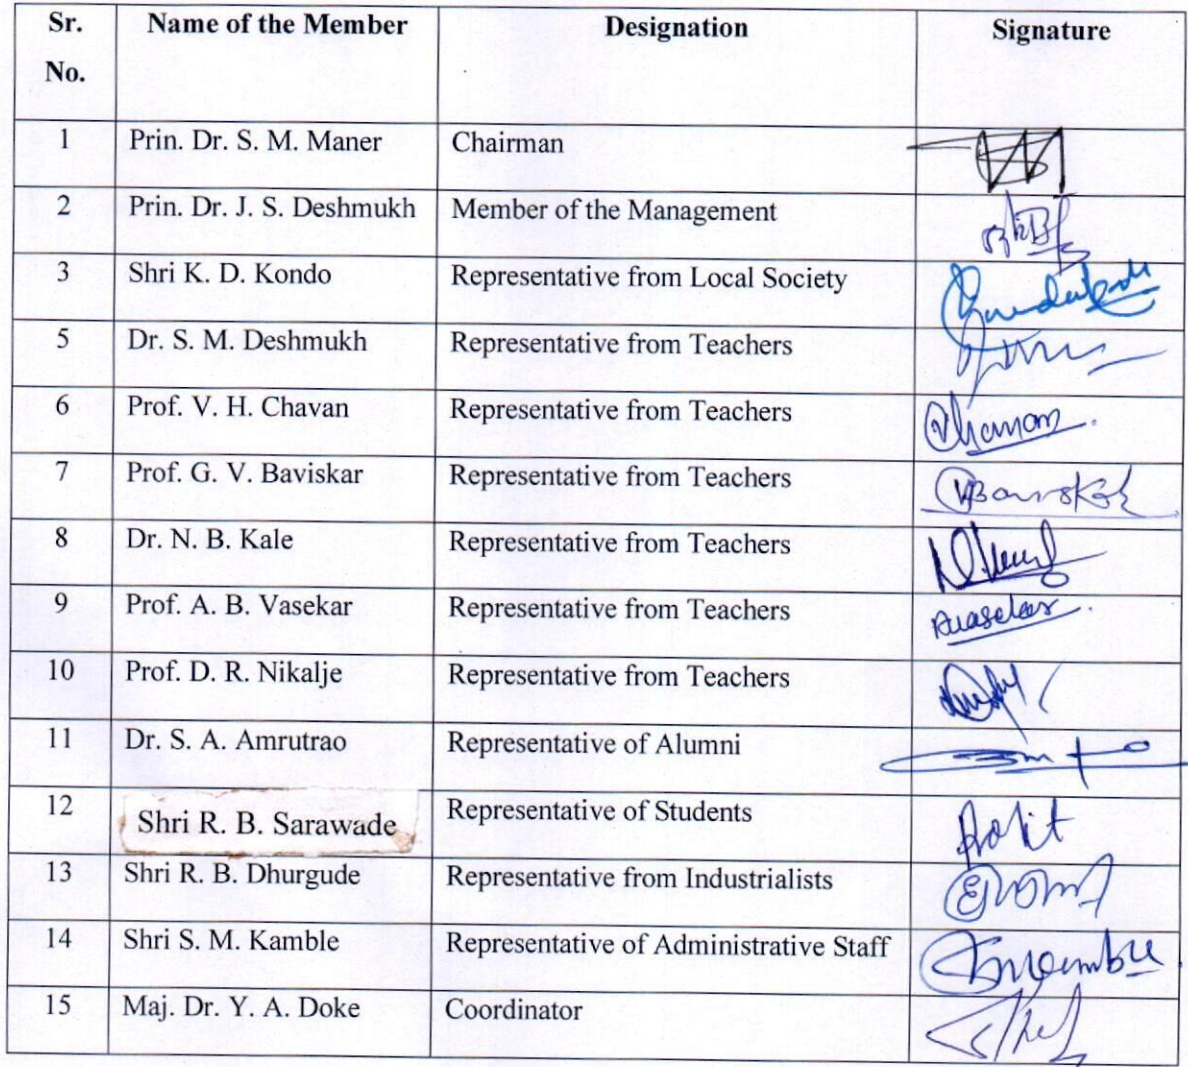 Sr. No. Name of the Member Designation Signature
1 Prin. Dr. S. M. Maner Chairman
2 Prin. Dr. J. S. Deshmukh Member of the Management
3 Shri K. D. Kondo Representative from Local Society
5 Dr. S. M. Deshmukh Representative from Teachers
6 Prof. V. H. Chavan Representative from Teachers
7 Prof. G. V. Baviskar Representative from Teachers
8 Dr. N. B. Kale Representative from Teachers
9 Prof. A. B. Vasekar Representative from Teachers
10 Prof. D. R. Nikalje Representative from Teachers
11 Dr. S. A. Amrutrao Representative of Alumni
12 Shri R. B. Sarawade Representative of Students Rohit
13 Shri R. B. Dhurgude Representative from Industrialists
14 Shri S. M. Kamble Representative of Administrative Staff
15 Maj. Dr. Y. A. Doke Coordinator